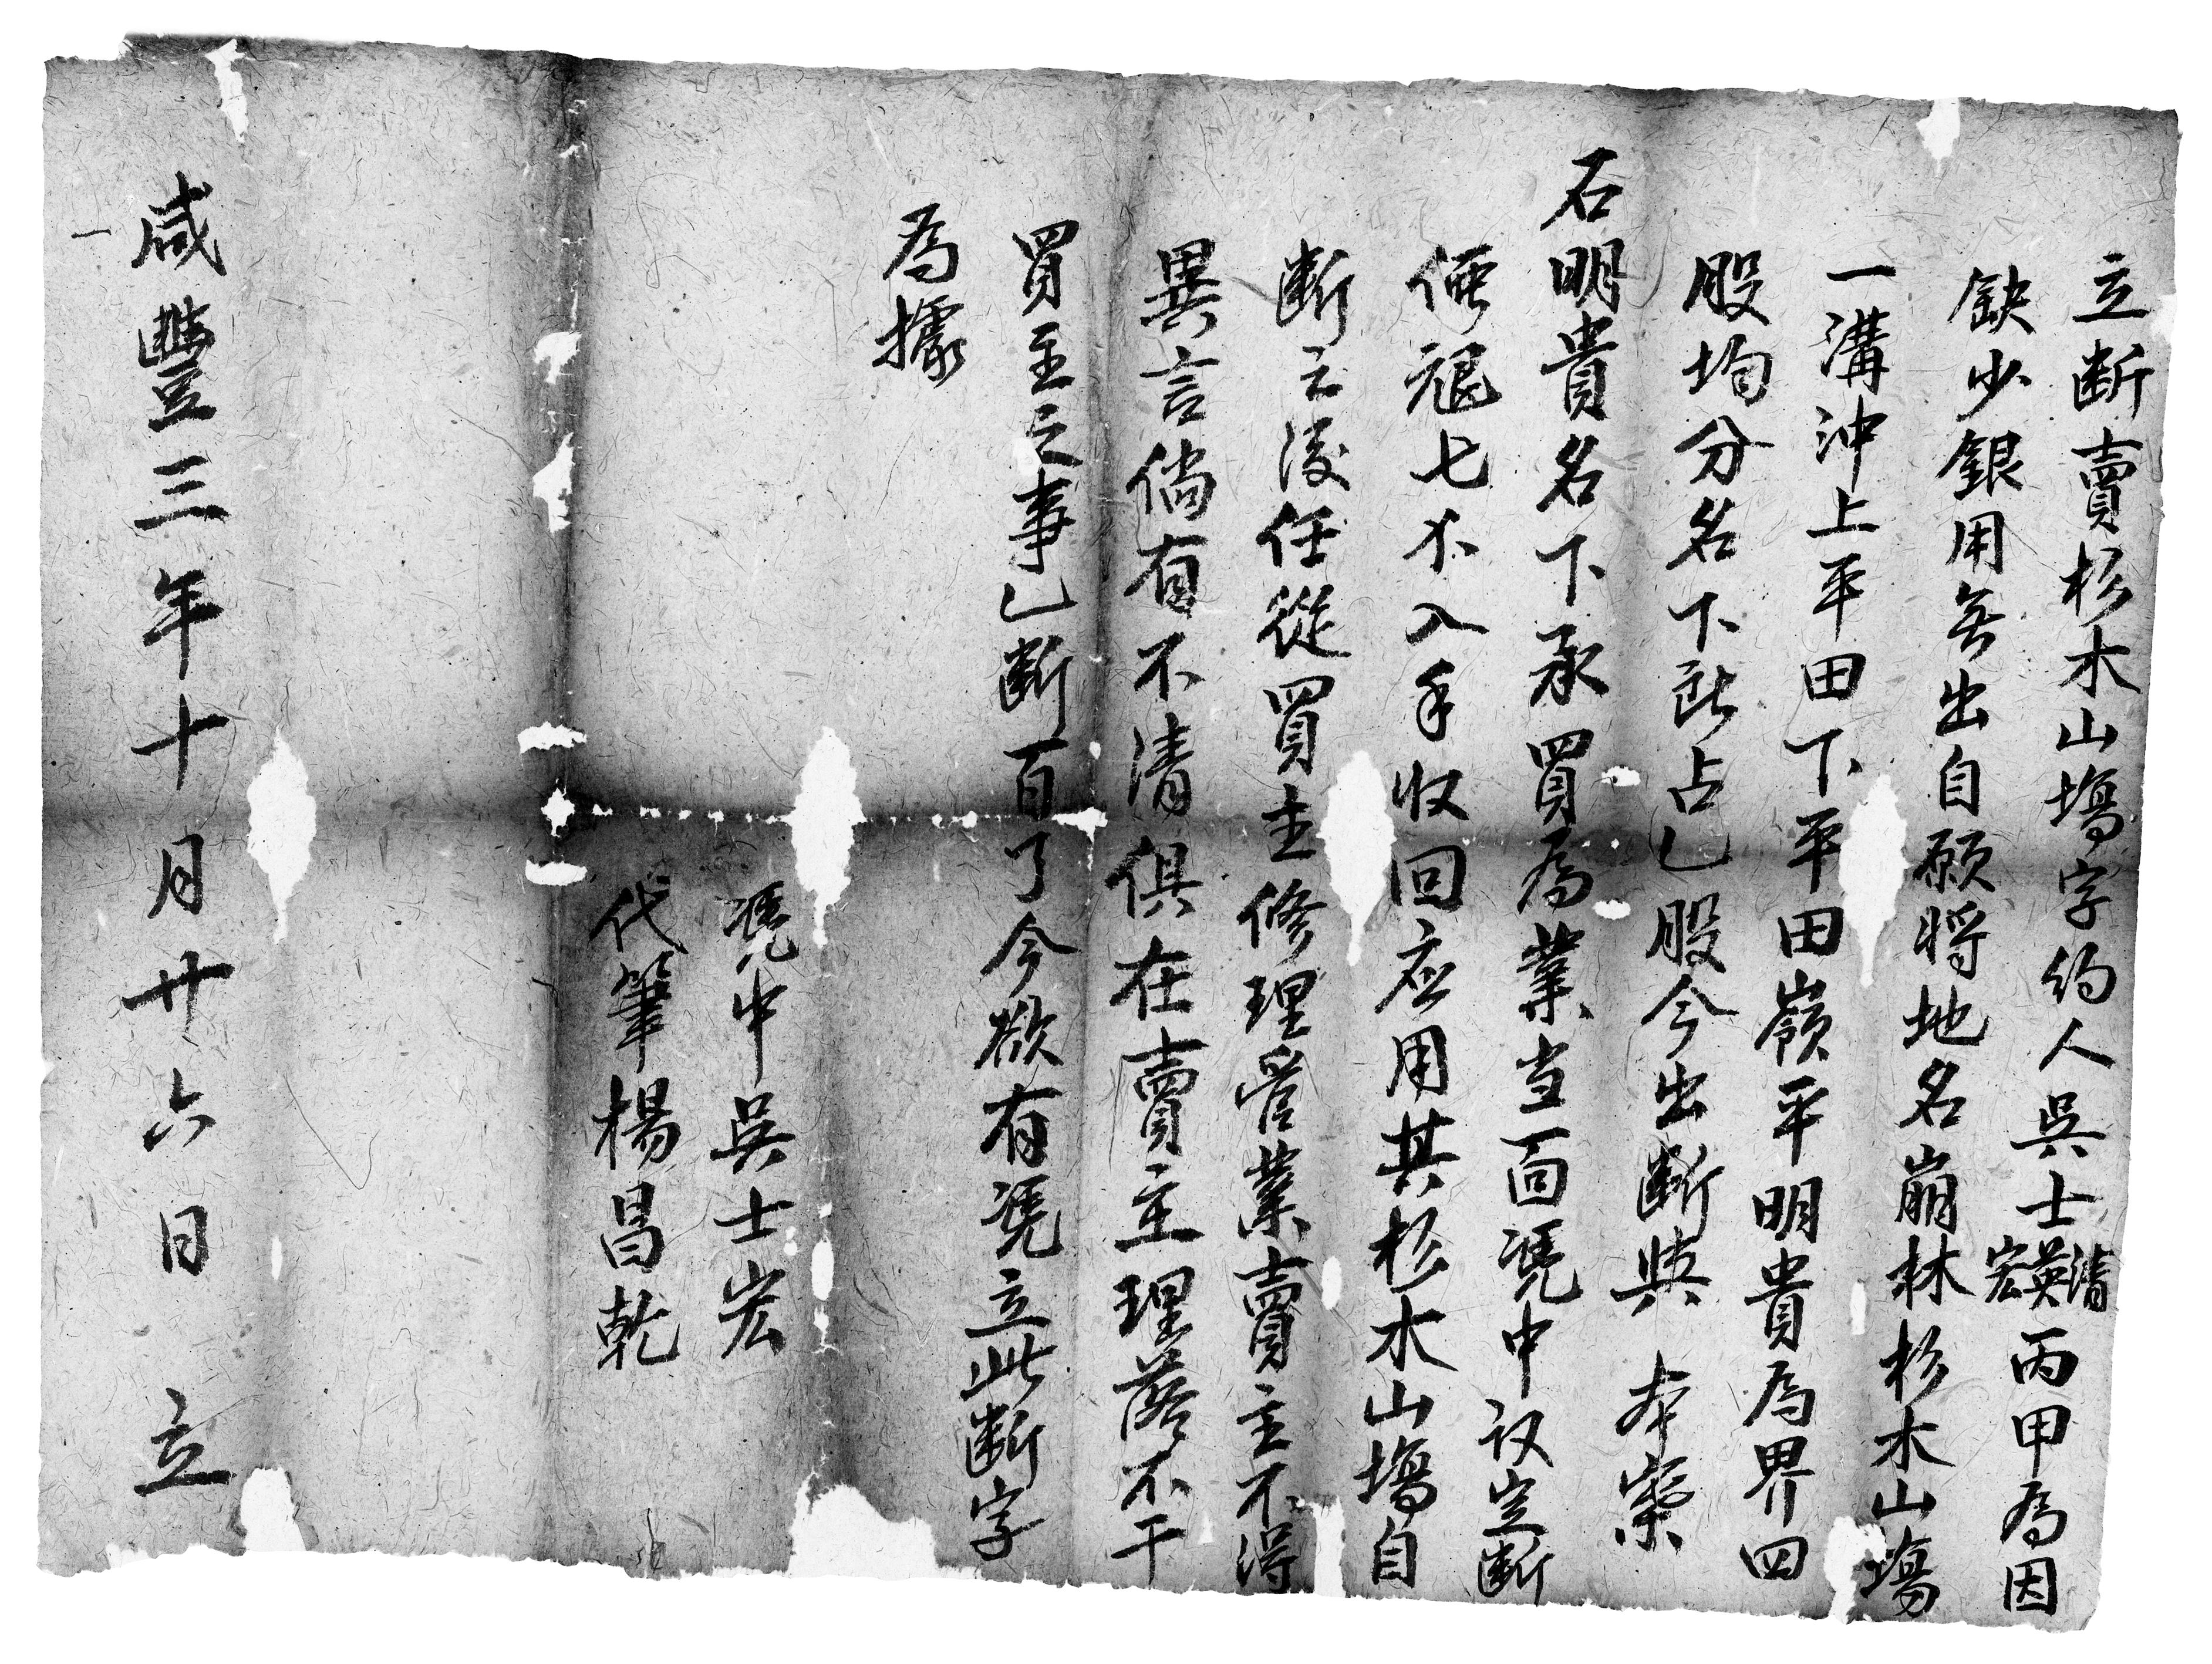 立断賣杉木山塲字約人吳士清英宏丙甲為因
缺少銀用無出自愿將地名崩林杉木山塲
一溝沖上平田下平田嶺平明貴為界四
股均分名下所占乚股今出断與 本寨
石明貴名下承買為業当面凴中议定断
価 七 入手收回应用其杉木山塲自
断之後任從買主修理管業賣主不得
異言倘有不清俱在賣主理落不干
買主之事乚断百了今欲有凴立此断字
為據
凴中吳士宏
代筆楊昌乾
咸豐三年十月廿六日 立